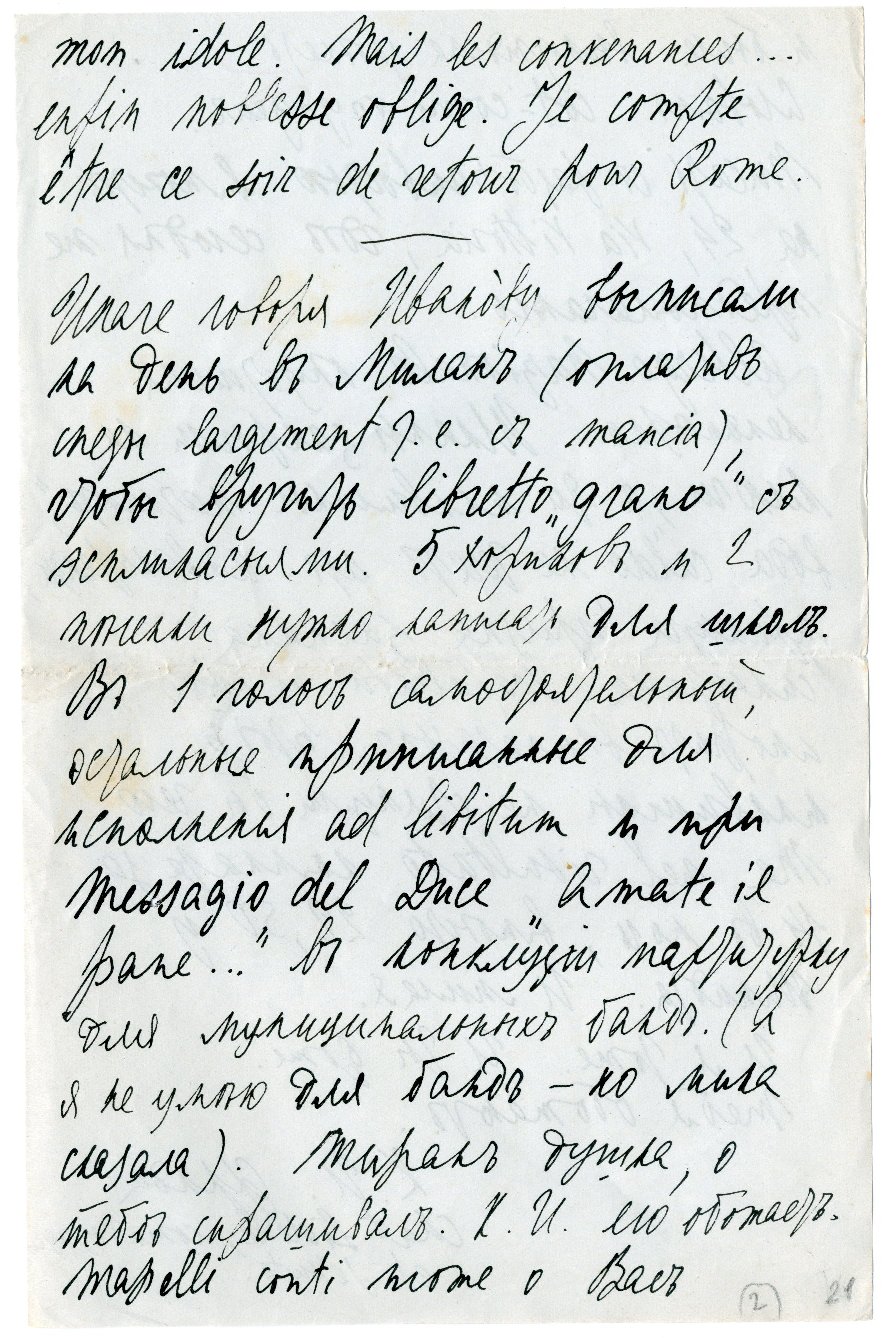 mon idole. Mais les convenances...
enfin noblesse oblige. Je compte
être ce soir de retour pour Rome.
Иначе говоря Ивано̀ву выписали
на день въ Миланъ (оплативъ
largement т. е. съ mancia),
чтобы вручить libretto „grano" съ
эспликасьями. 5 хориковъ и 2
нужно написать для школъ.
Въ 1 голосъ самостоятельный,
остальные приписанные для
исполненія ad libitum и при
Messagio del Duce „Amate il
pane..." въ конклузіи партитурку
для муниципальныхъ бандъ. (А
я не умѣю для бандъ – но
сказала). Тиранъ душка, о
тебѣ спрашивалъ. К. И. его обожаетъ.
Mapelli conti тоже о Васъ
(2) 21